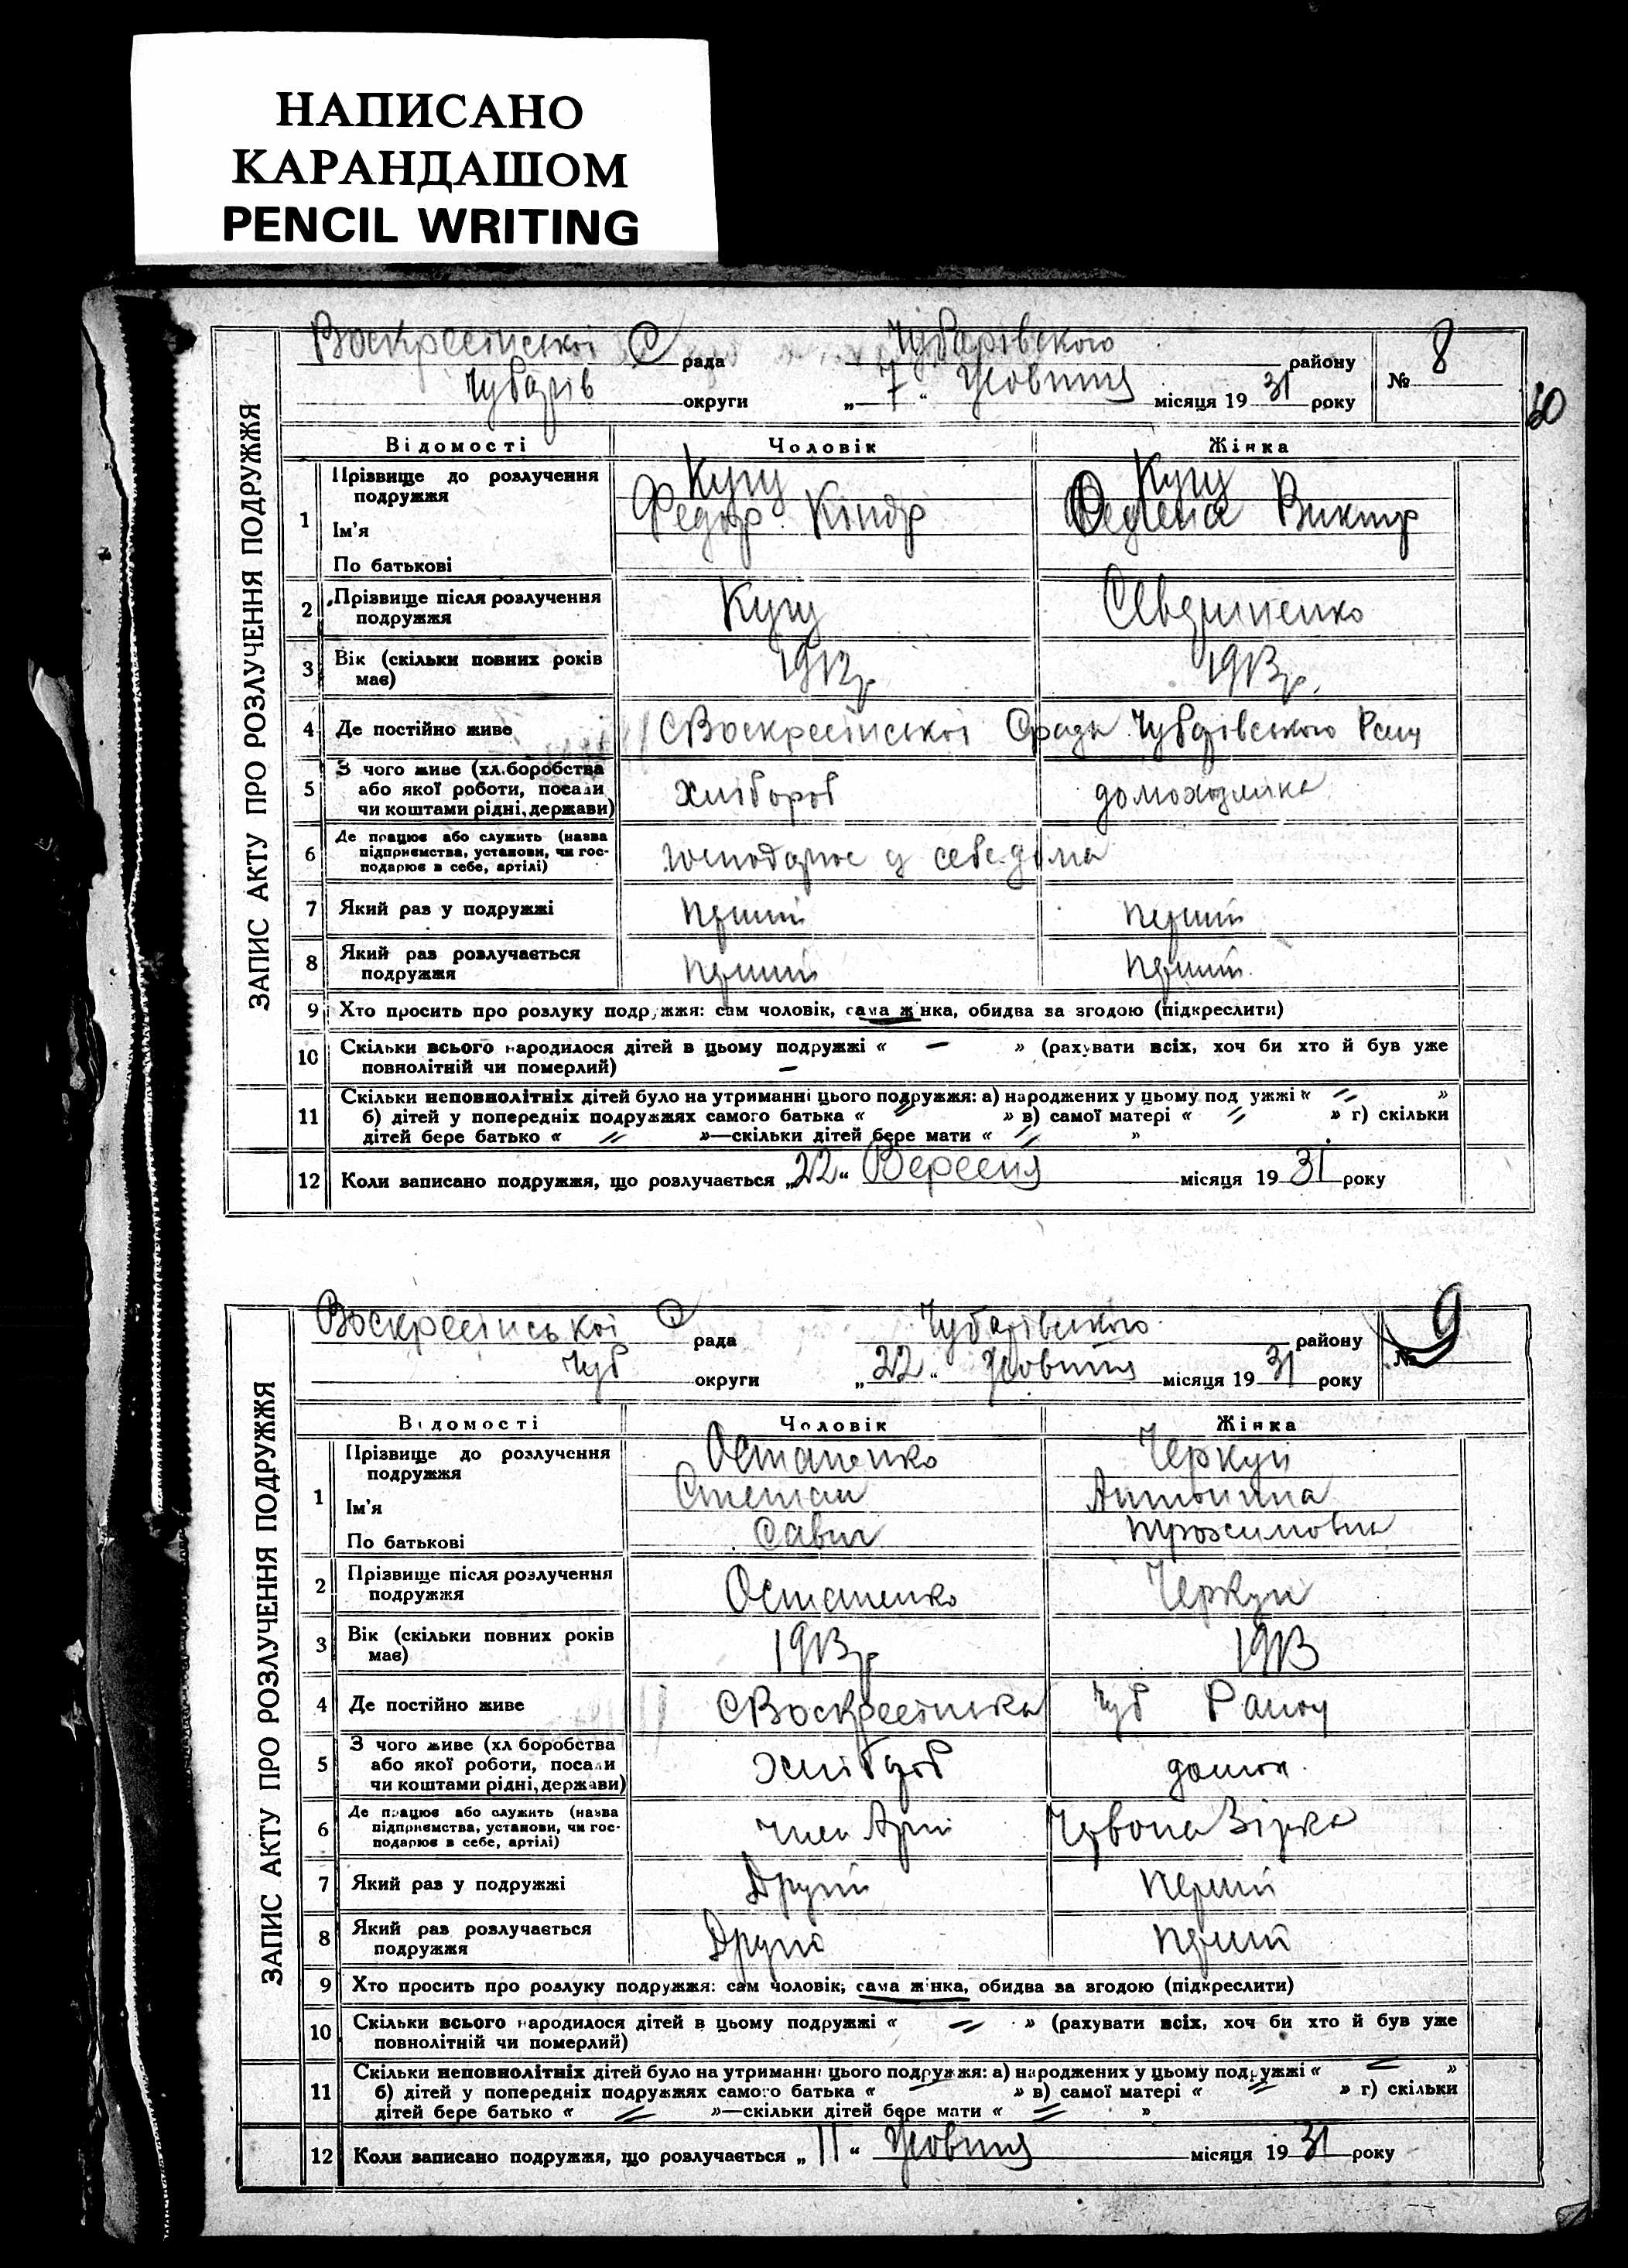 НАПИСАНО
КАРАНДАШОМ
PENCIL WRITING
Воскресінської С рада Чубарівського району № 8
Чубарів округи „ 7 “ Жовтня місяця 19 31 року
60
ЗАПИС АКТУ ПРО РОЗЛУЧЕННЯ ПОДРУЖЖЯ
Відомості Чоловік Жінка
1 Прізвище до розлучення подружжя Куцу Куцу
Ім'я Федор Кіндр Виктр
По батькові
2 Прізвище після розлучення подружжя Куцу Севериненко
3 Вік (скільки повних років має) 1912р 1913р.
4 Де постійно живе С Воскресінської Сради Чубарівського
5 З чого живе (хл.боробства або якої роботи, посади чи коштами рідні, держави) Хлібороб домохозяйка
6 Де працює або служить (назва підприємства, установи, чи господарює в себе, артілі) господарює у себе дома
7 Який раз у подружжі перший перший
8 Який раз розлучається подружжя перший перший
9 Хто просить про розлуку подружжя: сам чоловік, сама жінка, обидва за згодою (підкреслити)
10 Скільки всього народилося дітей в цьому подружжі « — » (рахувати всіх, хоч би хто й був уже
повнолітній чи померлий) —
11 Скільки неповнолітніх дітей було на утриманні цього подружжя: а) народжених у цьому подружжі « // »
б) дітей у попередніх подружжях самого батька « // » в) самої матері « // » г) скільки
дітей бере батько « // »—скільки дітей бере мати « // »
12 Коли записано подружжя, що розлучається „ 22 “ Вересня місяця 19 31 року
Воскресінської С рада Чубарівського району № 9
Чуб округи „ 22 “ Жовтня місяця 19 31 року
ЗАПИС АКТУ ПРО РОЗЛУЧЕННЯ ПОДРУЖЖЯ
Відомості Чоловік Жінка
1 Прізвище до розлучення подружжя Остапенко Черкун
Ім'я Степан Антонина
По батькові Савич Трохимовна
2 Прізвище після розлучення подружжя Остапенко Черкун
3 Вік (скільки повних років має) 1913р 1913
4 Де постійно живе С Воскресінка Чуб Району
5 З чого живе (хл боробства або якої роботи, посади чи коштами рідні, держави) Хлібороб
6 Де працює або служить (назва підприємства, установи, чи господарює в себе, артілі) член Арт Червона Зірка
7 Який раз у подружжі Другий перший
8 Який раз розлучається подружжя перший
9 Хто просить про розлуку подружжя: сам чоловік, сама жінка, обидва за згодою (підкреслити)
10 Скільки всього народилося дітей в цьому подружжі « // » (рахувати всіх, хоч би хто й був уже
повнолітній чи померлий)
11 Скільки неповнолітніх дітей було на утриманні цього подружжя: а) народжених у цьому подружжі « // »
б) дітей у попередніх подружжях самого батька « // » в) самої матері « // » г) скільки
дітей бере батько « // »—скільки дітей бере мати « // »
12 Коли записано подружжя, що розлучається „ 11 “ Жовтня місяця 19 31 року